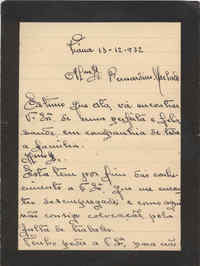 Viana 13-12-932
Exmº Sr. Bernardino Machado
Estimo que esta vá encontrar
V. Exª de uma perfeita e feliz
saude, em companhia de toda
a familia.
Exmº Sr.
Esta tem por fim dar conhe-
cimento a V. Exª que me encon-
tro desempregado, e como aqui
não consigo colocação pela
falta de trabalho.
Venho pedir a V. Exª, uma não